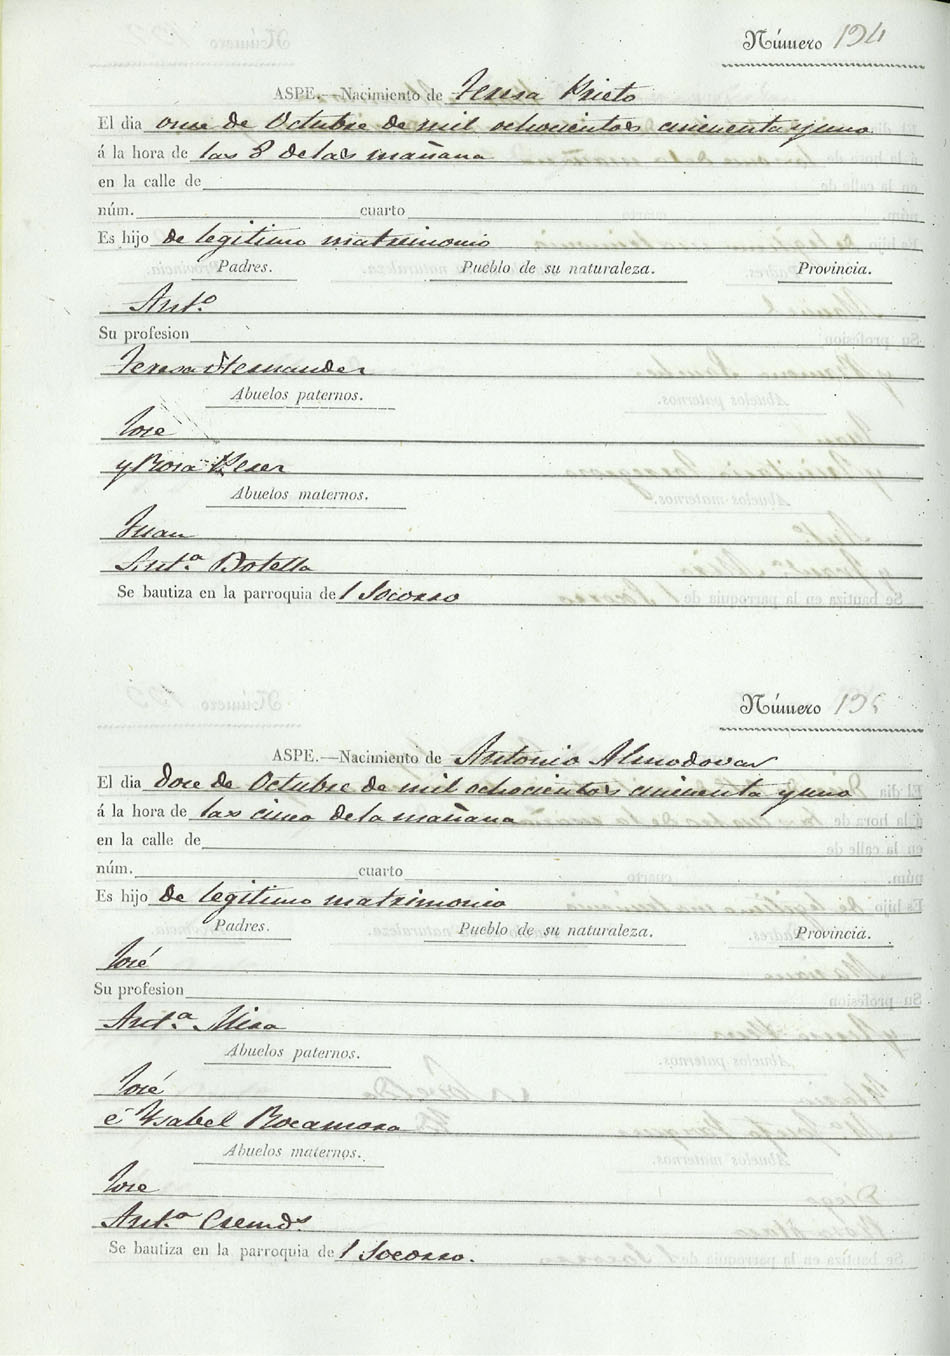 Número 194
ASPE.—Nacimiento de Teresa Prieto
El dia onse de Octubre de mil ochocientos cincuenta y uno
á la hora de las 8 de las mañana
en la calle de
núm. cuarto
Es hijo de legitimo matrimonio
Padres. Pueblo de su naturaleza. Provincia.
Antº
Su profesion
Teresa Hernandez
Abuelos paternos.
José
y Rosa
Abuelos maternos.
Juan
Antª Botella
Se bautiza en la parroquia del Socorro
Número 195
ASPE.—Nacimiento de Antonio Almodovar
El dia dose de Octubre de mil ochocientos cincuenta y uno
á la hora de las cinco de la mañana
en la calle de
núm. cuarto
Es hijo de legitimo matrimonio
Padres. Pueblo de su naturaleza. Provincia.
José
Su profesion
Antª Mira
Abuelos paternos.
José
é Ysabel Rocamora
Abuelos maternos.
Jose
Antª
Se bautiza en la parroquia del Socorro.